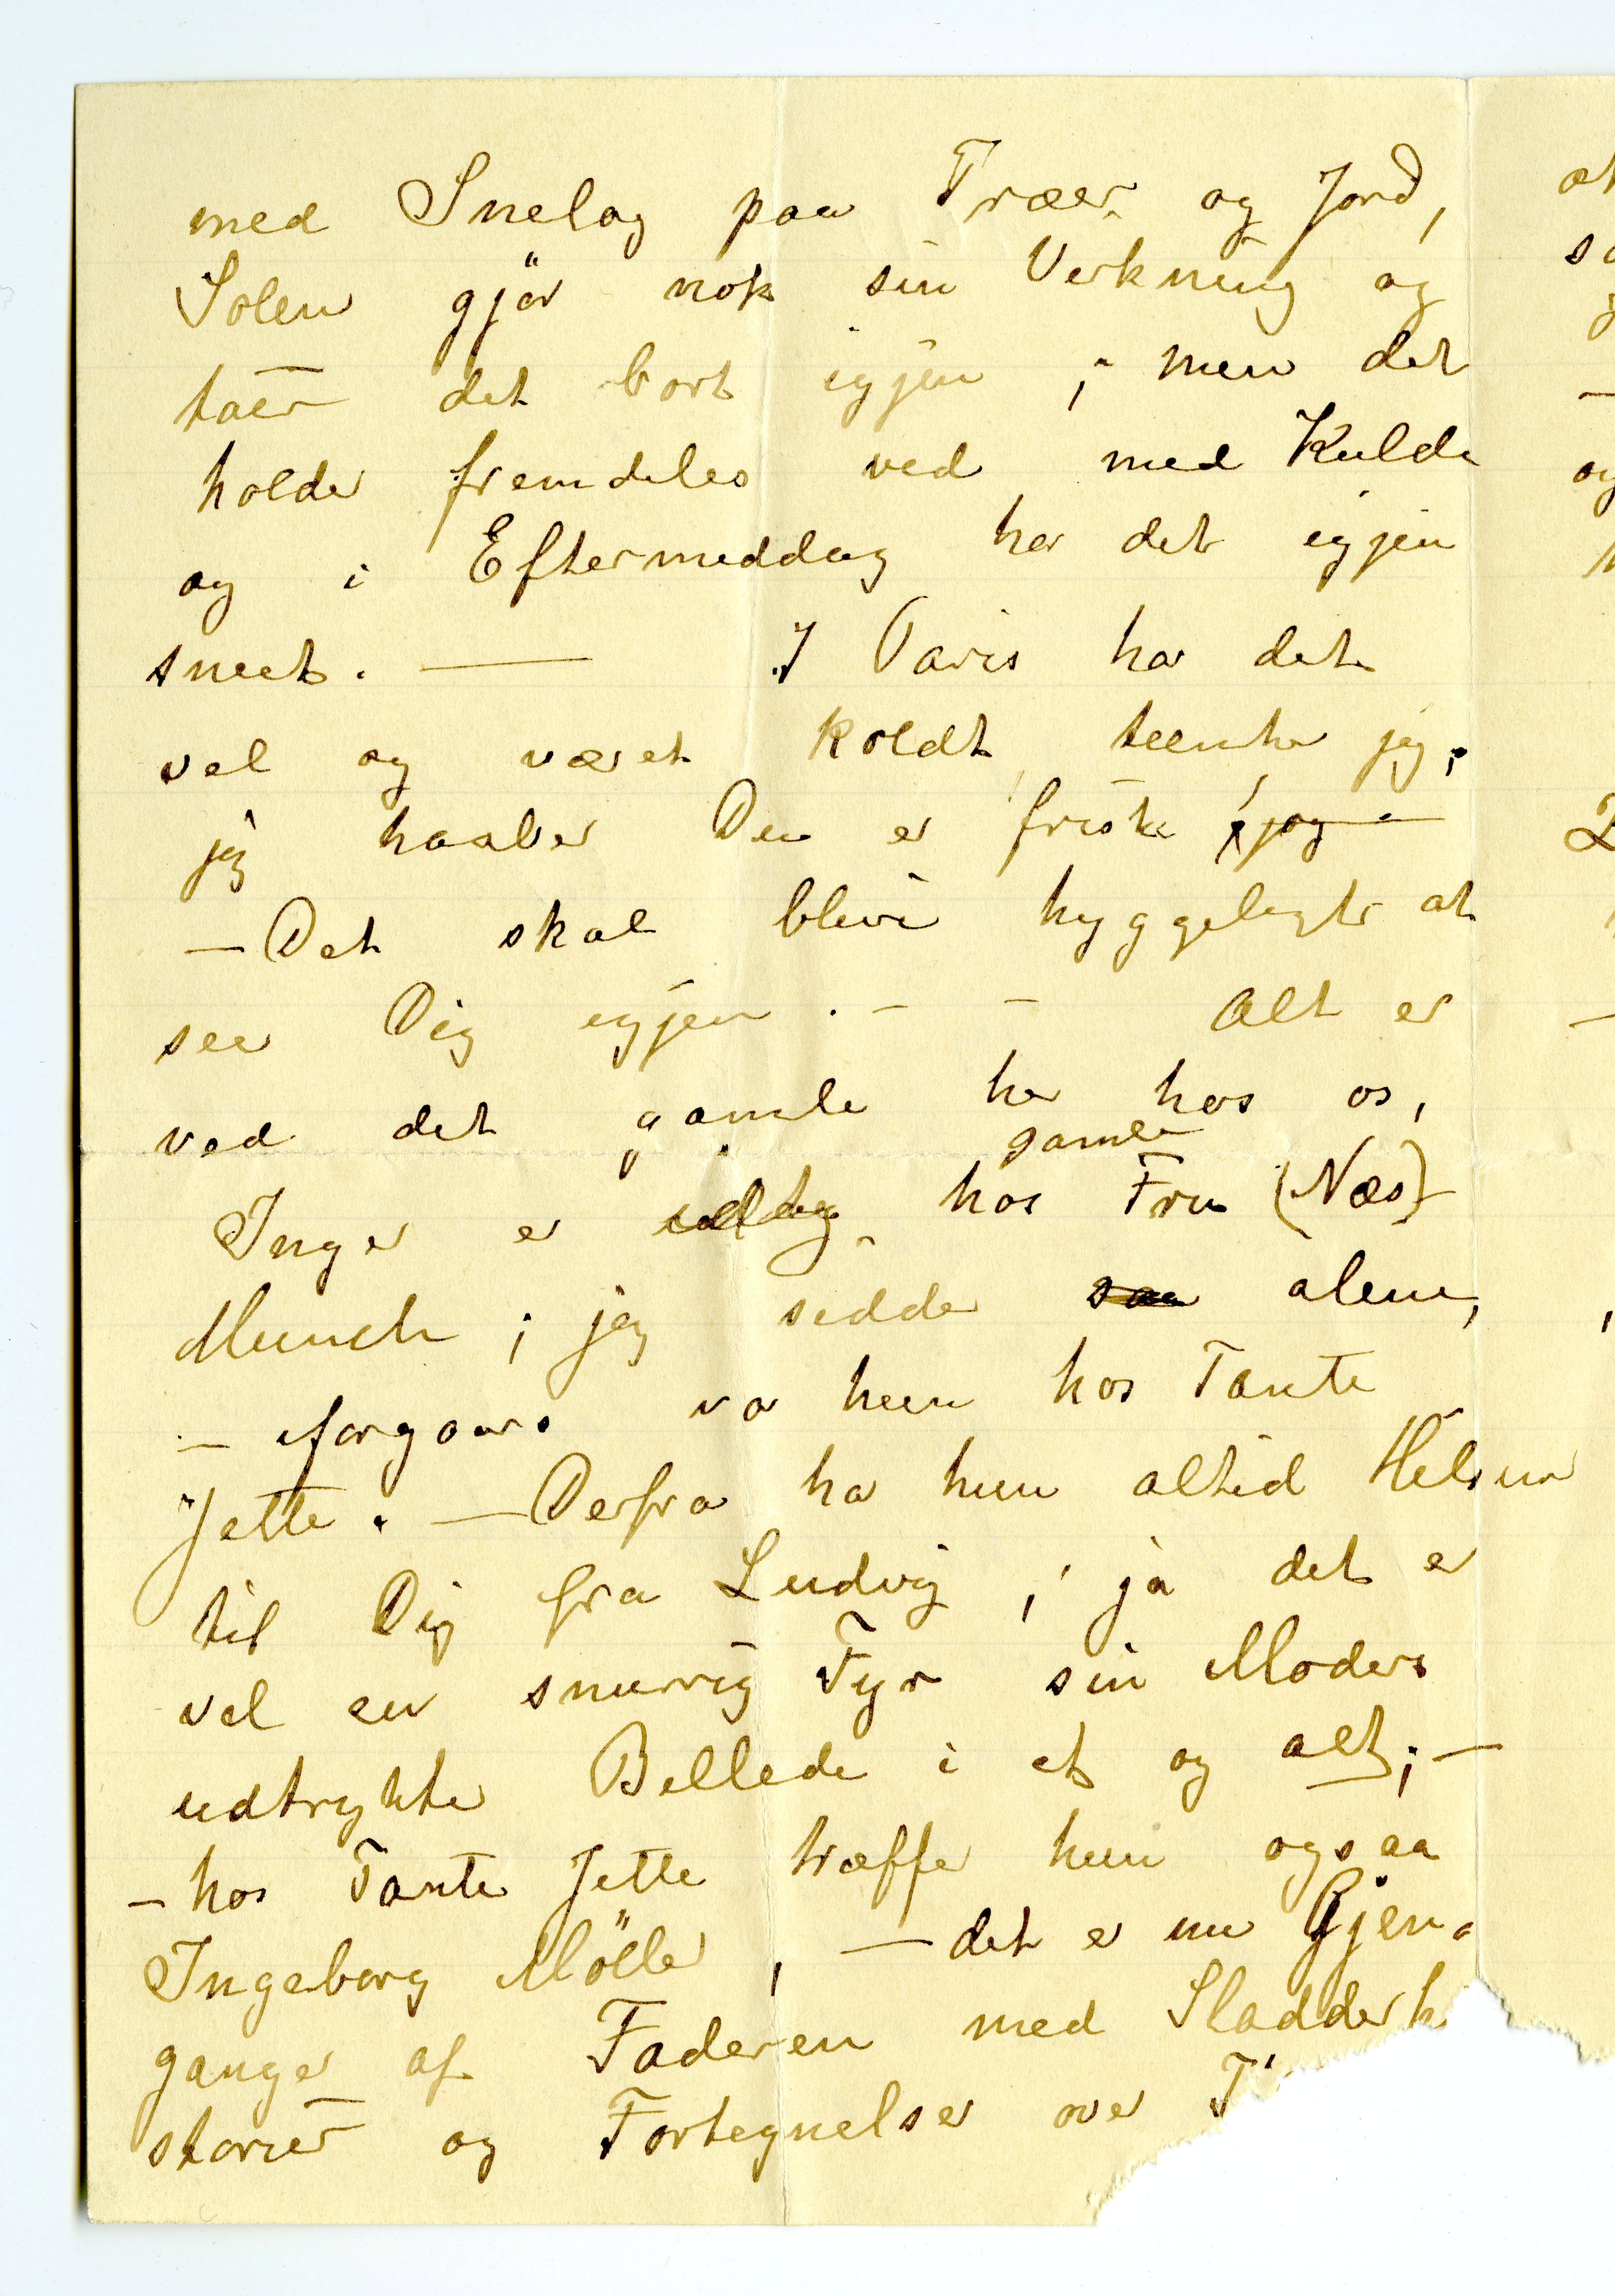 med Snelag paa Træer og Jord,
Solen gjör nok sin Verkning og
taer det bort igjen ; men det
holder fremdeles ved med Kulde
og i Eftermeddag har det igjen
sneet. — I Paris har det
vel og været koldt tænker jeg;
jeg haaber Du er frisk jeg
— Det skal blive hyggeligt at
see Dig igjen. — — Alt er
ved det gamle her hos os,
gamle
Inger er idag hos Fru (Næs)
Munch ; jeg sidder saa alene,
— iforgaars var hun hos Tante
Jette. — Derfra har hun altid Helsen
til Dig fra Ludvig ; ja det er
vel en snurrig Fyr sin Moders
udtrykte Bellede i et og alt; —
— hos Tante Jette træffer hun ogsaa
Ingeborg Möller , — det er nu Gjen-
ganger af Faderen med Sladderh
storier og Fortegnelser over